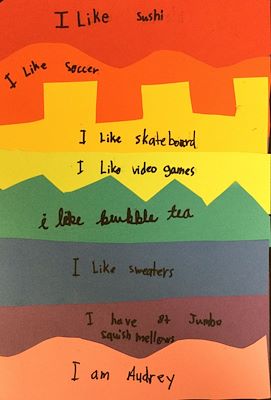 I Like Sushi
I Like Soccer
I Like skateboard
I Like video games
i like bubble tea
I Like sweaters
I have 87 Jumbo
Squishmellows
I am Audrey